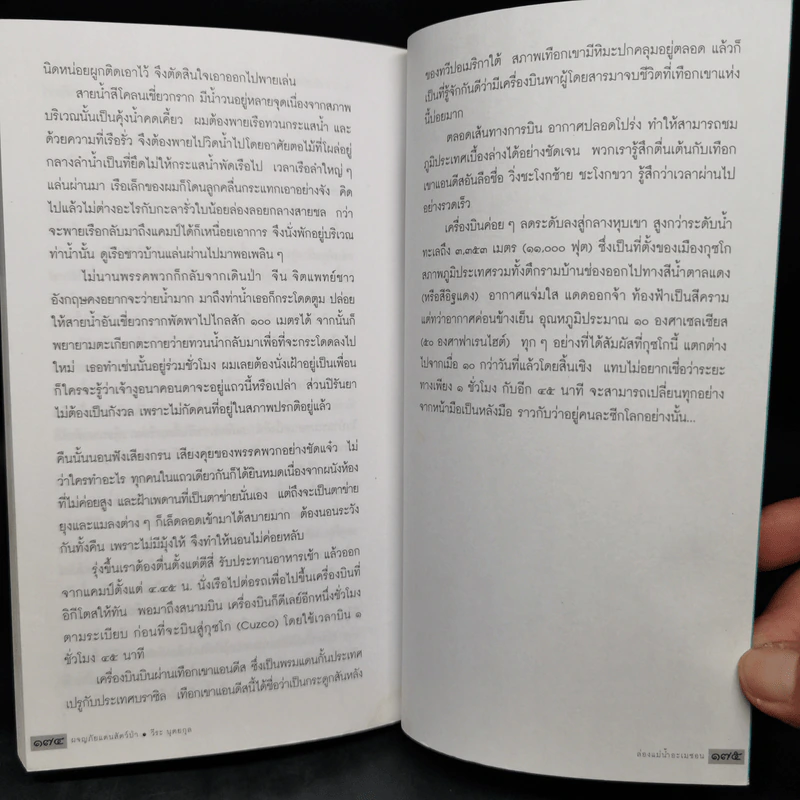 นิดหน่อยผูกติดเอาไว้ จึงตัดสินใจเอาออกไปพายเล่น
สายน้ำสีโคลนเชี่ยวกราก มีน้ำวนอยู่หลายจุดเนื่องจากสภาพ
บริเวณนั้นเป็นคุ้งน้ำคดเคี้ยว ผมต้องพายเรือทวนกระแสน้ำ และ
ด้วยความที่เรือรั่ว จึงต้องพายไปวิดน้ำไปโดยอาศัยตอไม้ที่โผล่อยู่
กลางลำน้ำเป็นที่ยึดไม่ให้กระแสน้ำพัดเรือไป เวลาเรือลำใหญ่ๆ
แล่นผ่านมา เรือเล็กของผมก็โดนลูกคลื่นกระแทกเอาอย่างจัง คิด
ไปแล้วไม่ต่างอะไรกับกะลารั่วใบน้อยล่องลอยกลางสายชล กว่า
จะพายเรือกลับมาถึงแคมป์ได้ก็เหนื่อยเอาการ จึงนั่งพักอยู่บริเวณ
ท่าน้ำนั้น ดูเรือชาวบ้านแล่นผ่านไปมาพอเพลินๆ
ไม่นานพรรคพวกก็กลับจากเดินป่า จีน จิตแพทย์ชาว
อังกฤษคงอยากจะว่ายน้ำมาก มาถึงท่าน้ำเธอก็กระโดดตูม ปล่อย
ให้สายน้ำอันเชี่ยวกรากพัดพาไปไกลสัก ๑๐๐ เมตรได้ จากนั้นก็
พยายามตะเกียกตะกายว่ายทวนน้ำกลับมาเพื่อที่จะกระโดดลงไป
ใหม่ เธอทำเช่นนั้นอยู่ร่วมชั่วโมง ผมเลยต้องนั่งเฝ้าอยู่เป็นเพื่อน
ก็ใครจะรู้ว่าเจ้างูอนาคอนดาจะอยู่แถวนี้หรือเปล่า ส่วนปิรันยา
ไม่ต้องเป็นกังวล เพราะไม่กัดคนที่อยู่ในสภาพปรกติอยู่แล้ว
คืนนั้นนอนฟังเสียงกรน เสียงคุยของพรรคพวกอย่างชัดแจ๋ว ไม่
ว่าใครทำอะไร ทุกคนในแถวเดียวกันก็ได้ยินหมดเนื่องจากผนังห้อง
ที่ไม่ค่อยสูง และฝ้าเพดานที่เป็นตาข่ายนั่นเอง แต่ถึงจะเป็นตาข่าย
ยุงและแมลงต่างๆ ก็เล็ดลอดเข้ามาได้สบายมาก ต้องนอนระวัง
กันทั้งคืน เพราะไม่มีมุ้งให้ จึงทำให้นอนไม่ค่อยหลับ
รุ่งขึ้นเราต้องตื่นตั้งแต่ตีสี่ รับประทานอาหารเช้า แล้วออก
จากแคมป์ตั้งแต่ ๔.๔๕ น. นั่งเรือไปต่อรถเพื่อไปขึ้นเครื่องบินที่
อิกิโตสให้ทัน พอมาถึงสนามบิน เครื่องบินก็ดีเลย์อีกหนึ่งชั่วโมง
ตามระเบียบ ก่อนที่จะบินสู่กุซโก (Cuzco) โดยใช้เวลาบิน ๑
ชั่วโมง ๔๕ นาที
เครื่องบินบินผ่านเทือกเขาแอนดีส ซึ่งเป็นพรมแดนกั้นประเทศ
เปรูกับประเทศบราซิล เทือกเขาแอนดีสนี้ได้ชื่อว่าเป็นกระดูกสันหลัง
๑๗๔ ผจญภัยแดนสัตว์ป่า • วีระ นุตยกุล
ของทวีปอเมริกาใต้ สภาพเทือกเขามีหิมะปกคลุมอยู่ตลอด แล้วก็
เป็นที่รู้จักกันดีว่ามีเครื่องบินพาผู้โดยสารมาจบชีวิตที่เทือกเขาแห่ง
นี้บ่อยมาก
ตลอดเส้นทางการบิน อากาศปลอดโปร่ง ทำให้สามารถชม
ภูมิประเทศเบื้องล่างได้อย่างชัดเจน พวกเรารู้สึกตื่นเต้นกับเทือก
เขาแอนดีสอันลือชื่อ วิ่งชะโงกซ้าย ชะโงกขวา รู้สึกว่าเวลาผ่านไป
อย่างรวดเร็ว
เครื่องบินค่อยๆ ลดระดับลงสู่กลางหุบเขา สูงกว่าระดับน้ำ
ทะเลถึง ๓,๓๕๓ เมตร (๑๑,๐๐๐ ฟุต) ซึ่งเป็นที่ตั้งของเมืองกุซโก
สภาพภูมิประเทศรวมทั้งตึกรามบ้านช่องออกไปทางสีน้ำตาลแดง
(หรือสีอิฐแดง) อากาศแจ่มใส แดดออกจ้า ท้องฟ้าเป็นสีคราม
แต่ทว่าอากาศค่อนข้างเย็น อุณหภูมิประมาณ ๑๐ องศาเซลเซียส
(๕๐ องศาฟาเรนไฮต์) ทุกๆ อย่างที่ได้สัมผัสที่กุซโกนี้ แตกต่าง
ไปจากเมื่อ ๑๐ กว่าวันที่แล้วโดยสิ้นเชิง แทบไม่อยากเชื่อว่าระยะ
ทางเพียง ๑ ชั่วโมง กับอีก ๔๕ นาที จะสามารถเปลี่ยนทุกอย่าง
จากหน้ามือเป็นหลังมือ ราวกับว่าอยู่คนละซีกโลกอย่างนั้น...
ล่องแม่น้ำอะเมซอน ๑๗๕